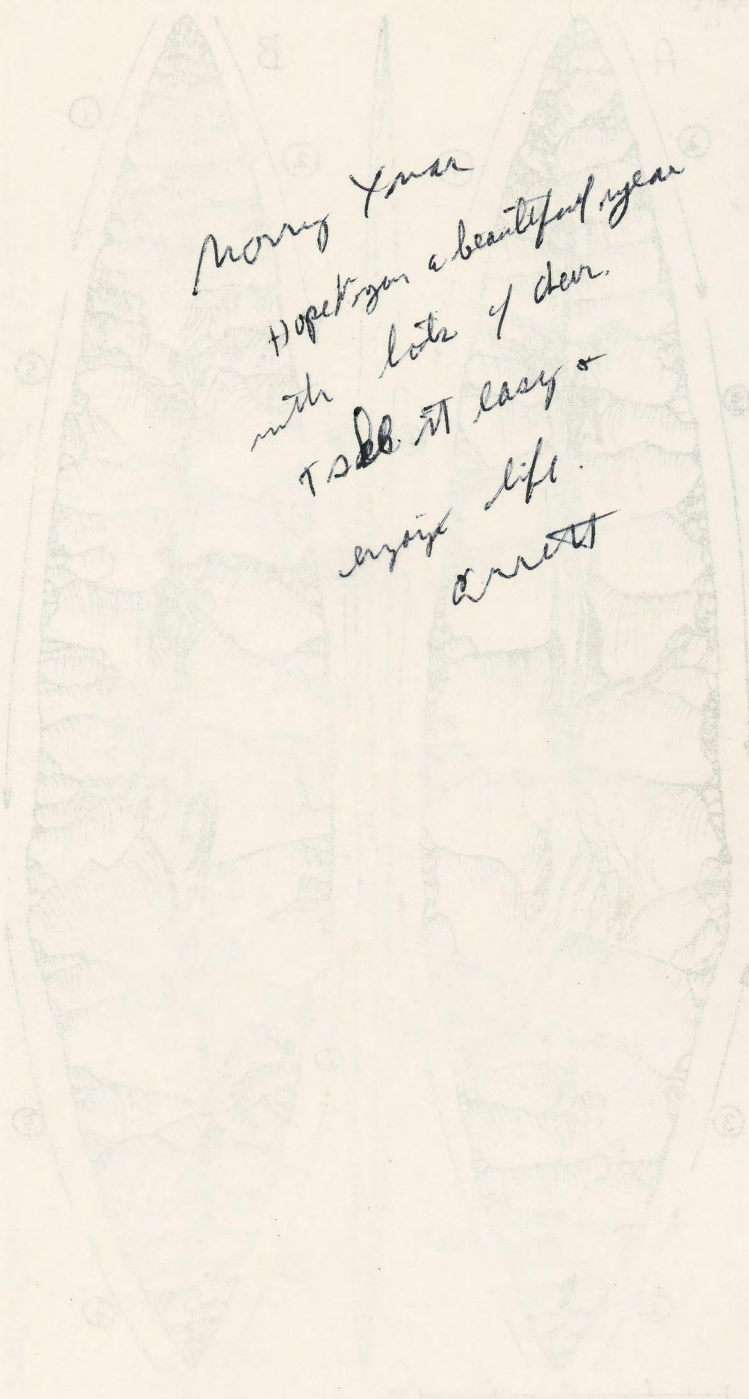 Merry Xmas
Hope you a beautiful year
with lots of cheer.
Take it easy &
enjoy life.
Errett
B
A